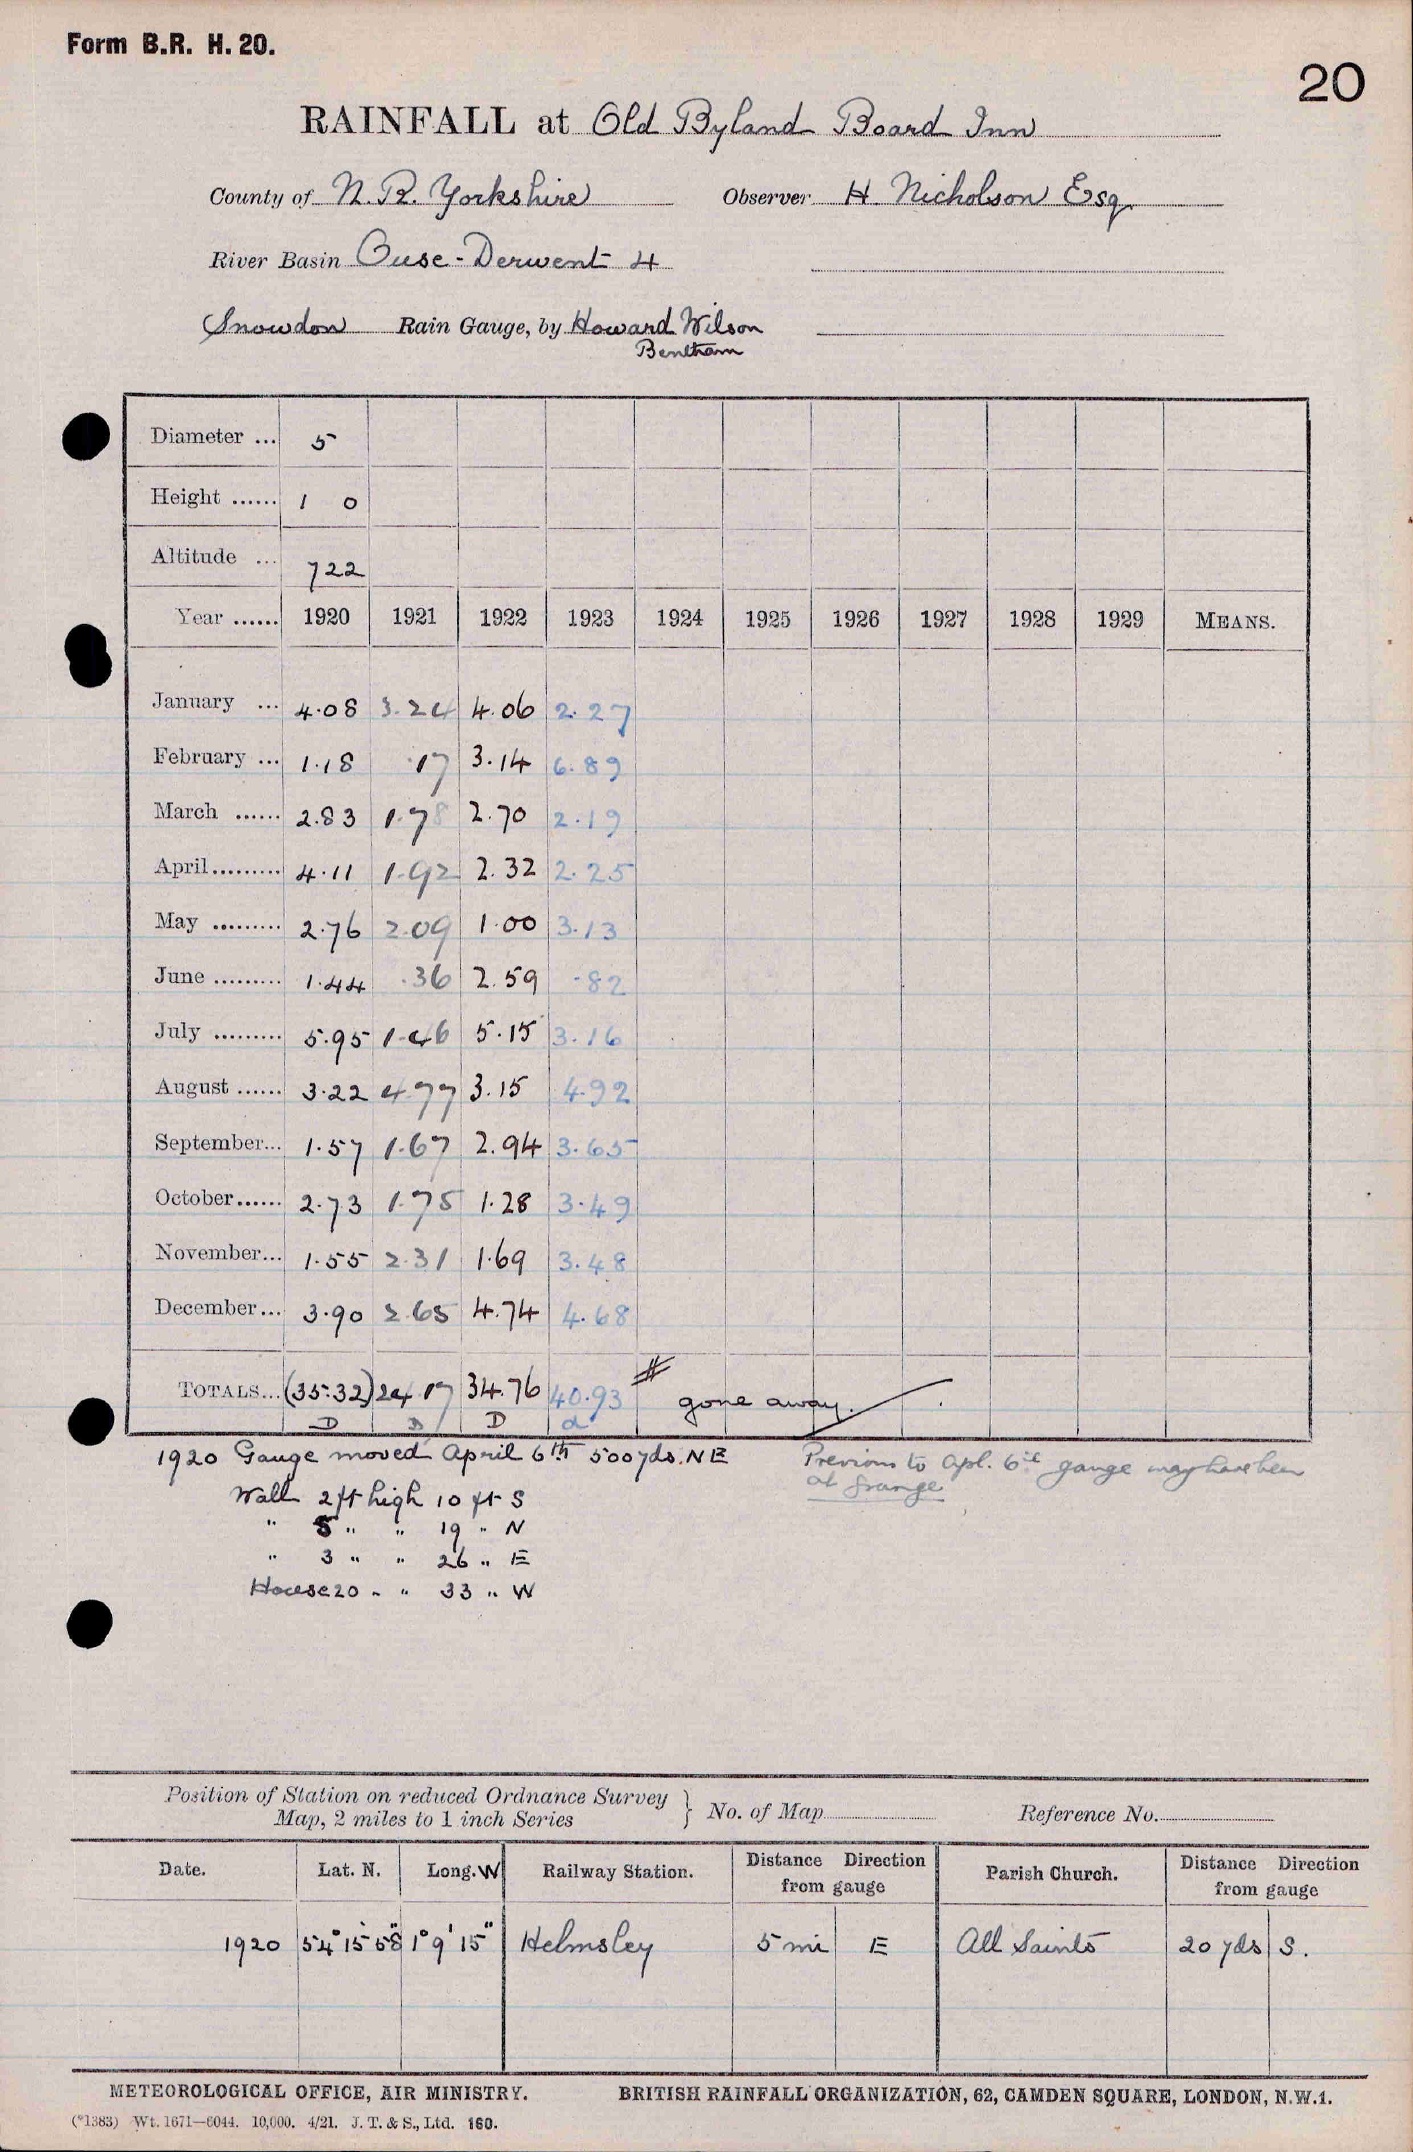 Form B.R. H. 20.
20
RAINFALL at Old Byland Board Inn
County of N.R. Yorkshire Observer H. Nicholson Esq.
River Basin Ouse-Derwent 4
Snowdon Rain Gauge, by Howard Wilson
Bentham
Diameter ... 5
Height ...... 1 0
Altitude ... 722
Year ...... 1920 1921 1922 1923 1924 1925 1926 1927 1928 1929 MEANS.
January ... 4.08 3.24 4.06 2.27
February ... 1.18 .17 3.14 6.89
March ...... 2.83 1.78 2.70 2.19
April......... 4.11 1.92 2.32 2.25
May ......... 2.76 2.09 1.00 3.13
June ......... 1.44 .36 2.59 .82
July ......... 5.95 1.46 5.15 3.16
August ...... 3.22 4.77 3.15 4.92
September... 1.57 1.67 2.94 3.65
October...... 2.73 1.75 1.28 3.49
November... 1.55 2.31 1.69 3.48
December... 3.90 2.65 4.74 4.68
TOTALS... (35.32) 24.17 34.76 40.93 # gone away.
D D D d
1920 Gauge moved April 6th 500 yds. NE
Previous to Apl. 6th gauge may have been
at Grange
Wall 2 ft high 10 ft S
" 5 " " 19 " N
" 3 " " 26 " E
House 20 " " 33 " W
Position of Station on reduced Ordnance Survey
Map, 2 miles to 1 inch Series } No. of Map Reference No.
Date. Lat. N. Long. W Railway Station. Distance Direction from gauge Parish Church. Distance Direction from gauge
1920 54° 15' 58" 1° 9' 15" Helmsley 5 mi E All Saints 20 yds S.
METEOROLOGICAL OFFICE, AIR MINISTRY. BRITISH RAINFALL ORGANIZATION, 62, CAMDEN SQUARE, LONDON, N.W.1.
(*1383) Wt. 1671—6044. 10,000. 4/21. J. T. & S., Ltd. 160.